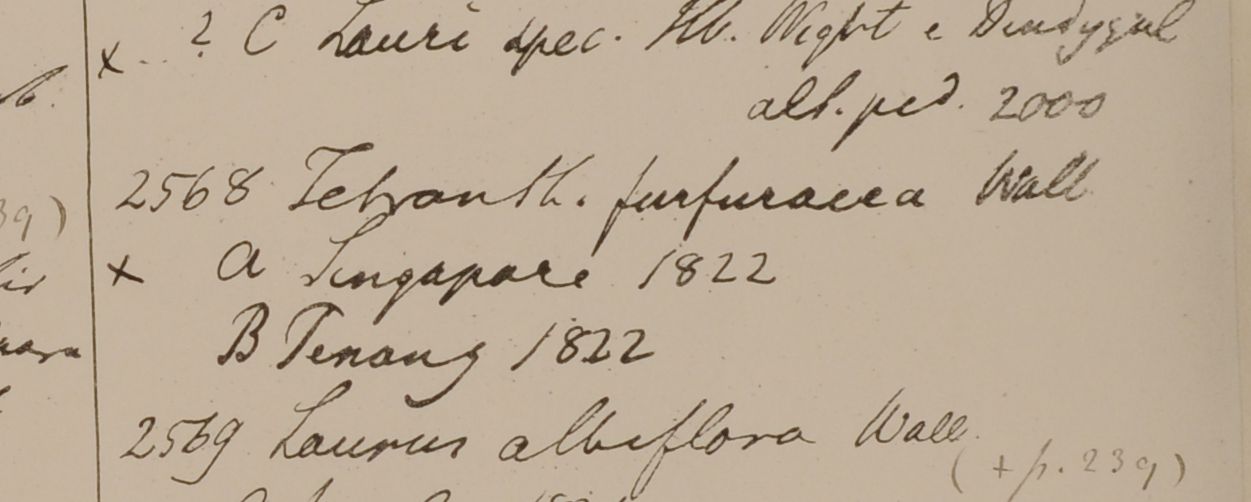 x ? C Lauri spec. Hb. Wight e Dindygul
alt. ped. 2000
39)
2568 Tetranth. furfuracea Wall
x a Singapore 1822
B Penang 1822
2569 Laurus albiflora Wall.
(+ p. 239)